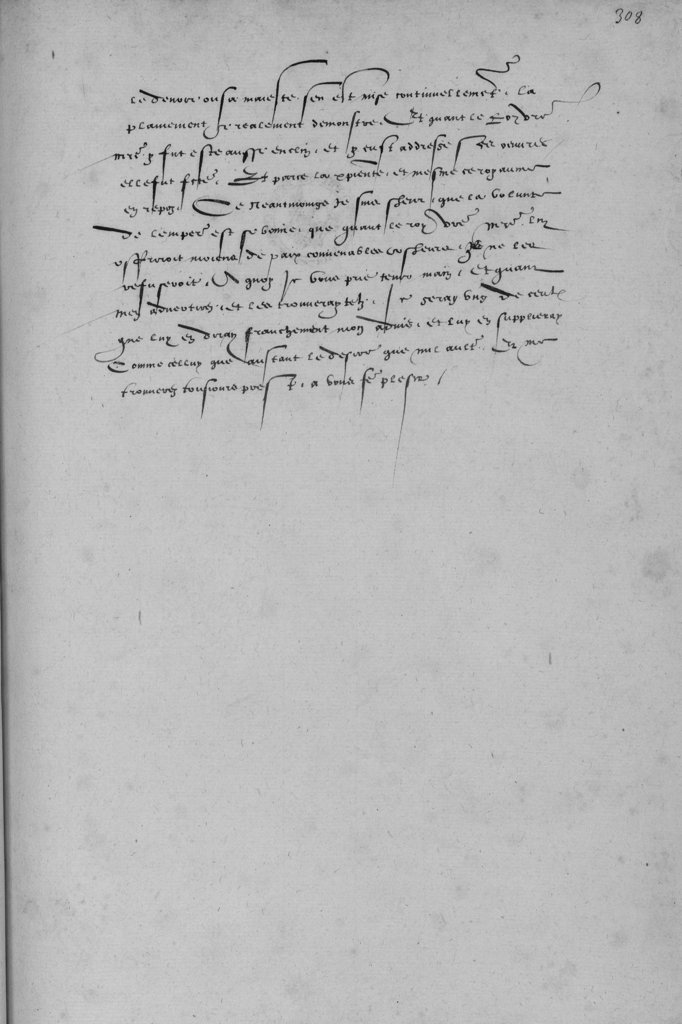 308
le devoir ou sa maieste sen est mise continuellemet . la
plainement et realement demonstre . Et quant le Roy vre
mre y fut este aussi enclin . et y eust addresse ses oeuvres
elle fut fcte . Et par ce la xpiente . et mesme ce royaume
en repoz . Et neantmoings je suis sheur . que la volunte
de lempere est si bonne . que quant le roy vre mre luy
offriroit moiens de paix convenables et sheurs . ne les
refuseroit . A quoy Je vous prie tenir main . et quant
men advertirez . et les trouveray telz . Je seray ung de ceulx
que luy en diray franchement mon advis . et luy en supplieray
Comme celluy que aultant le desire que nul aultre . Et me
trouverez tousiours prest . a vous fe plesir /